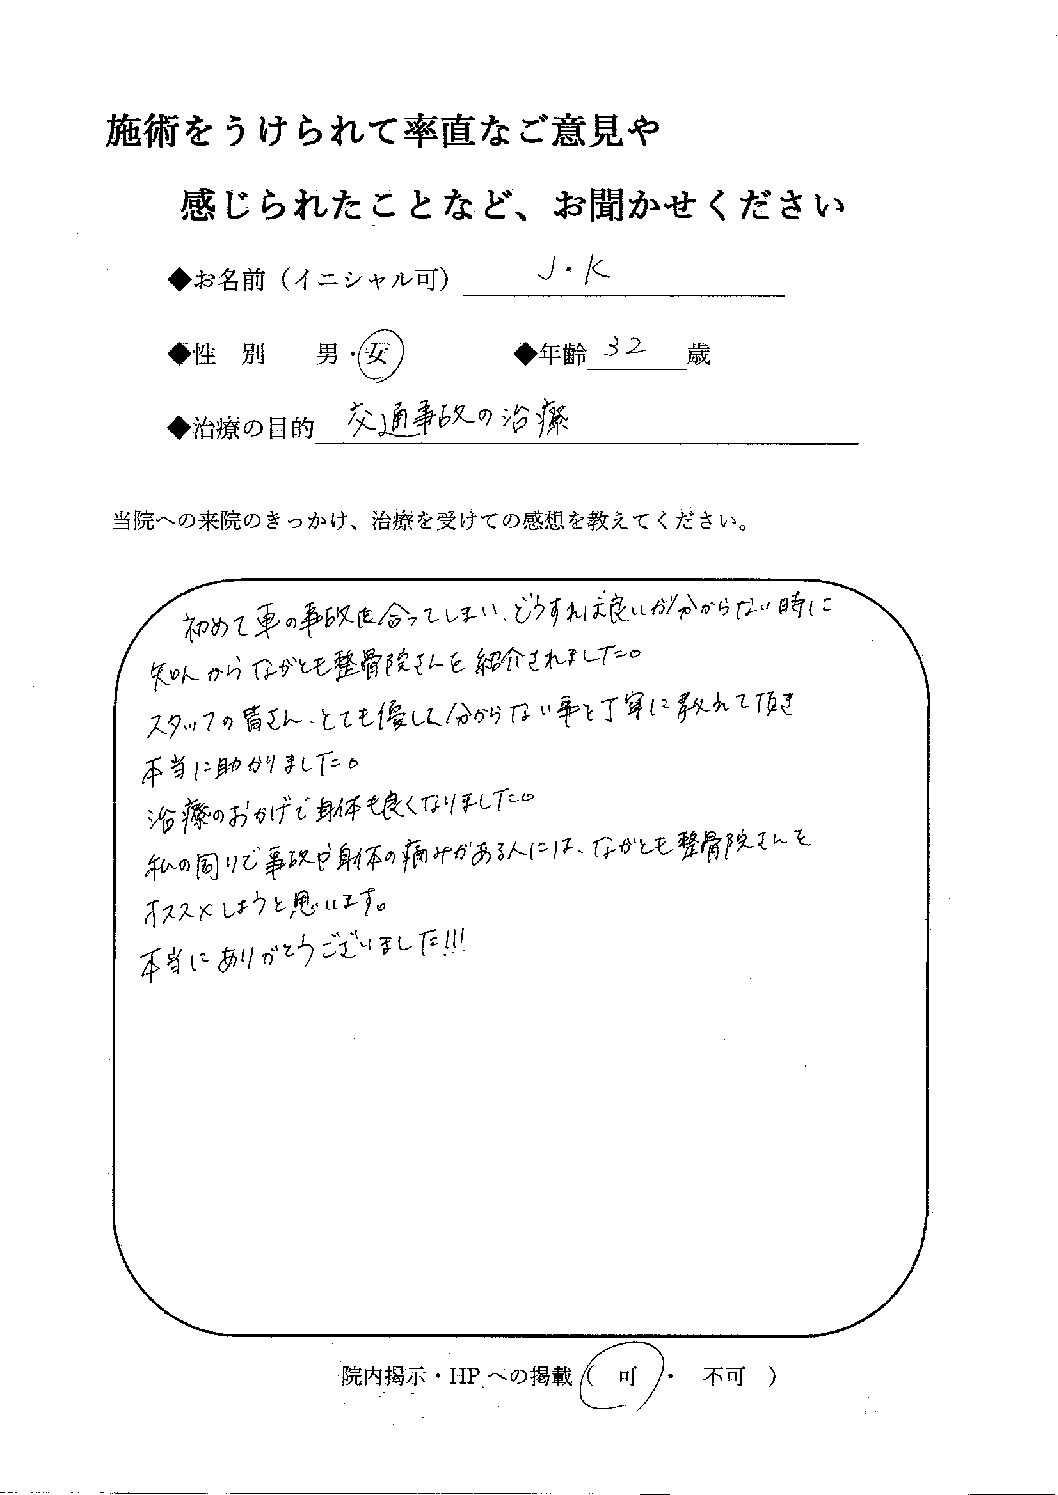 施術をうけられて率直なご意見や
感じられたことなど、お聞かせください
◆お名前（イニシャル可） J・K
◆性 別 男・女 ◆年齢 32 歳
◆治療の目的 交通事故の治療
当院への来院のきっかけ、治療を受けての感想を教えてください。
初めて車の事故に合ってしまい、どうすれば良いか分からない時に
知人からながとも整骨院さんを紹介されました。
スタッフの皆さん、とても優しく分からない事を丁寧に教えて頂き
本当に助かりました。
治療のおかげで身体も良くなりました。
私の周りで事故や身体の痛みがある人には、ながとも整骨院さんを
オススメしようと思います。
本当にありがとうございました!!!
院内掲示・HPへの掲載（ 可 ・ 不可 ）